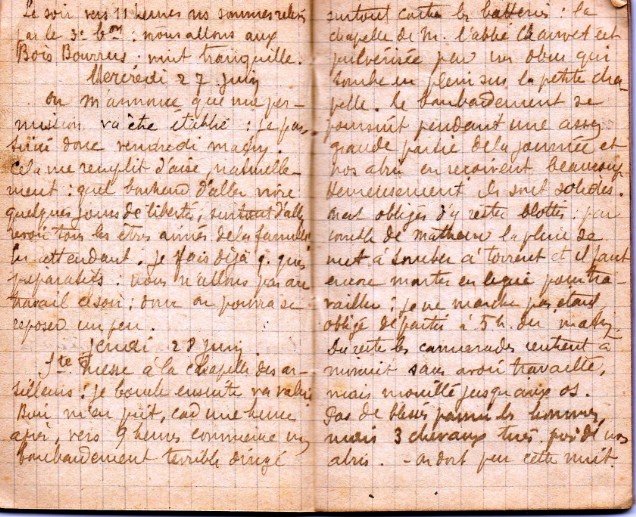 Le soir vers 11 heures nos sommes relevés
par le 3e bon : nous allons aux
Bois Bourrus. nuit tranquille.
Mercredi 27 juin
on m'annonce que ma per-
mission va être établie : je par-
tirai donc vendredi matin.
Cela me remplit d'aise, naturelle-
ment : quel bonheur d'aller vivre
quelques jours de liberté, surtout d'aller
revoir tous les êtres aimés de la famille
les attendant. je fais déjà q. ques
préparatifs. nous n'allons pas au
travail ce soir : donc on pourra se
reposer un peu.
Jeudi 28 juin
Ste Messe à la chapelle des ar-
tilleurs : je boucle ensuite ma valise
Bien m'en prit, car une heure
après, vers 9 heures commence un
bombardement terrible dirigé
surtout contre les batteries : la
chapelle de M. l'abbé Chauvet est
pulvérisée par un obus qui
tombe en plein sur la petite cha-
pelle. le bombardement se
poursuit pendant une assez
grande partie de la journée et
nos abris en reçoivent beaucoup
Heureusement ils sont solides.
obligés d'y rester blottis : par
comble de malheur la pluie se
met à tomber à torrent et il faut
encore monter en ligne pour tra-
vailler : je ne marche pas étant
obligé de partir à 5 h. du matin.
Du reste les camarades rentrent à
minuit sans avoir travaillé,
mais mouillé jusqu'aux os.
Pas de blessés parmi les hommes,
mais 3 chevaux tués près de nos
abris. - on dort peu cette nuit.